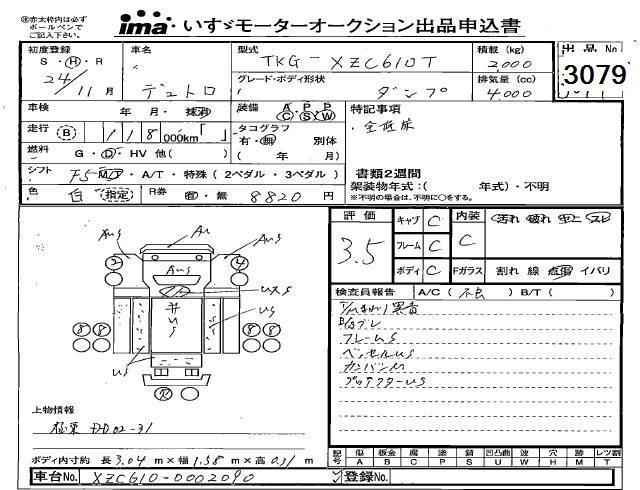 ㊟赤太枠内は必ず
ボールペンで
ご記入下さい。
ima いすゞモーターオークション出品申込書
初度登録 車名 型式 積載 (kg) 出品No
S・H・R TKG-XZC610T 2,000 3079
24/11月 デュトロ グレード・ボディ形状 ダンプ 排気量 (cc) 4,000
車検 年 月・抹消 装備 A P P C S W 特記事項
走行 B 118 000km「 」 タコグラフ 有・無 別体 ・全低床
燃料 G・D・HV 他( ) ( 年 月)
シフト F5 M/T・A/T・特殊 (2ペダル・3ペダル) 書類2週間
色 白 指定 R券 有・無 8820 円 架装物年式:( 年式)・不明
※不明の場合は、不明に○をする。
評価 3.5 キャブ C 内装 C 汚れ 破れ コゲ スレ
フレーム C
ボディ C Fガラス 割れ 線 点傷 イバリ
検査員報告 A/C (不良) B/T ( )
フレームS
ベッセルUS
カンバンM
プロテクターUS
AUS AU AUS
2 AUS 4
UXS
井 US US
8 8 8 8
US US
R
上物情報
極東 DD02-31
ボディ内寸約 長 3.04 m×幅 1.58 m×高 0.31 m
記号 傷 板金 腐 塗 錆 凹凸曲 波 穴 跡 レツ割
A B C P S U W H M T
車台No. XZC610-0002090 登録No.